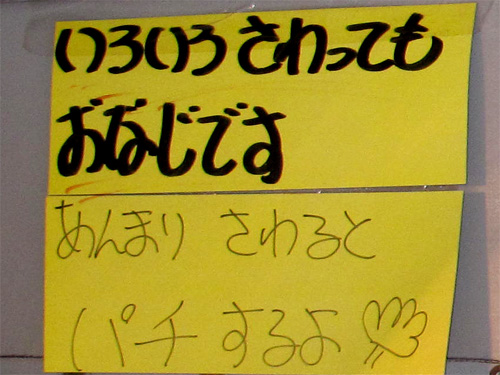 いろいろ さわっても
おなじです
あんまり さわると
パチするよ